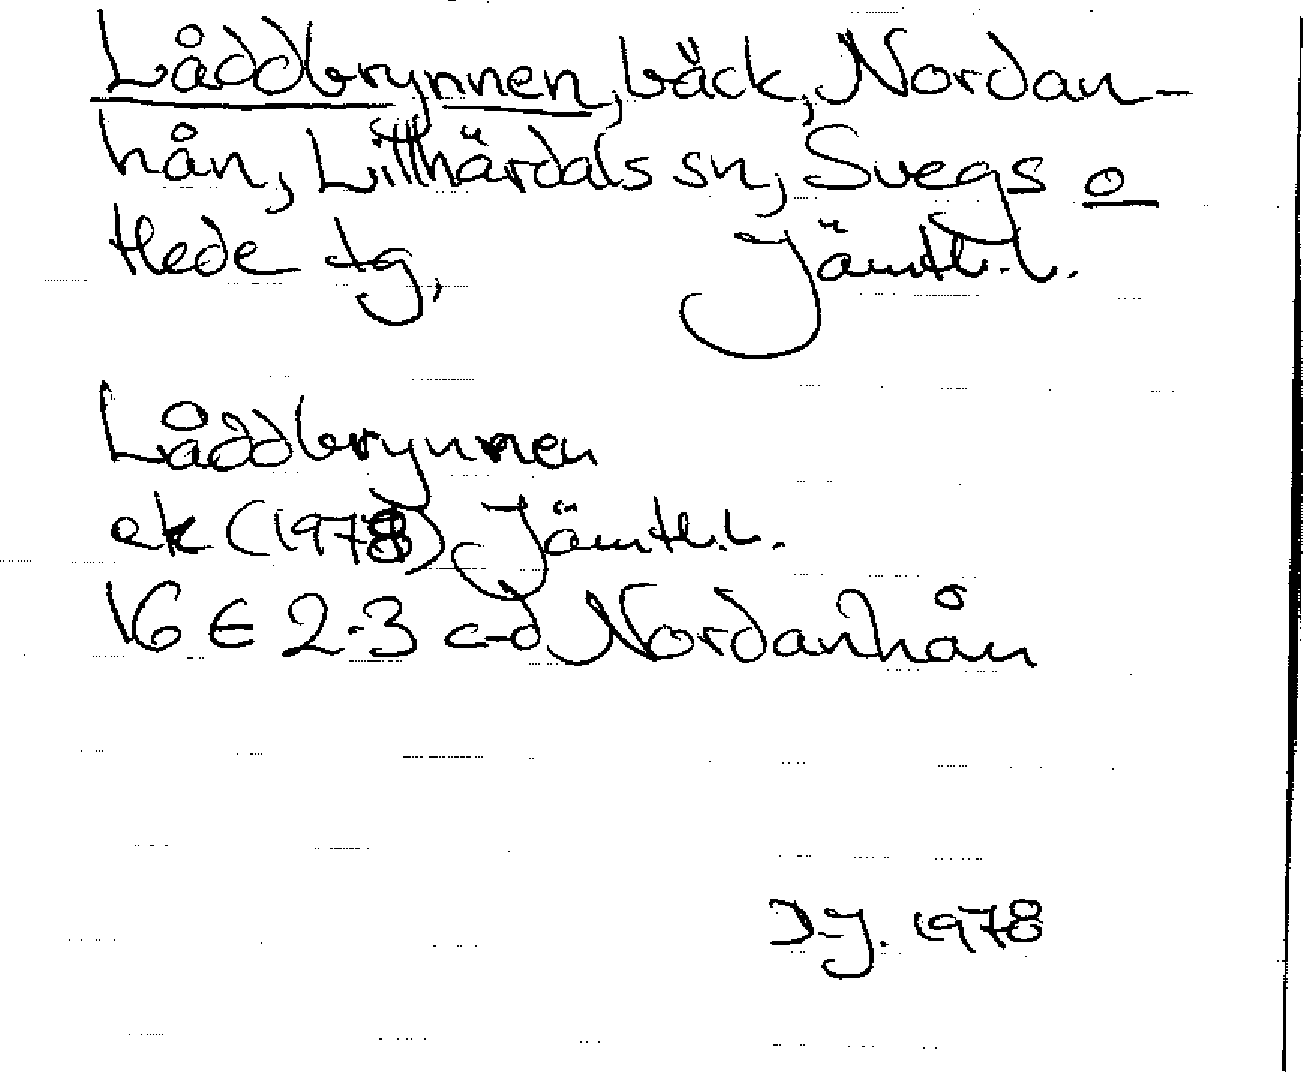 Låddbrynnen, bäck, Nordan-
hån, Lillhärdals sn, Svegs o
Hede tg, Jämtl.l.
Låddbrynnen
ek (1978) Jämtl.l.
16 E 2-3 c-d Nordanhån
D-J. 1978